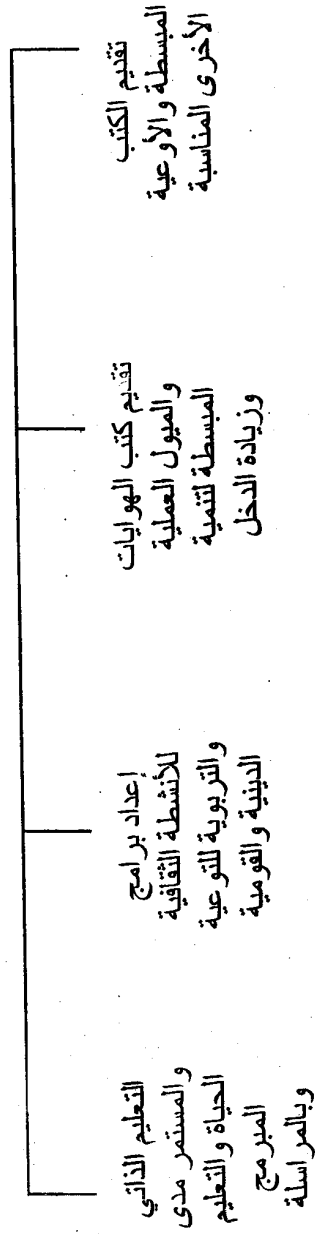 تقديم الكتب
المبسطة والأوعية
الأخرى المناسبة
تقديم كتب الهوايات
والميول العملية
المبسطة لتنمية
وزيادة الدخل
إعداد برامج
للأنشطة الثقافية
والتربوية للتوعية
الدينية والقومية
التعليم الذاتي
والمستمر مدى
الحياة والتعليم
المبرمج
وبالمراسلة